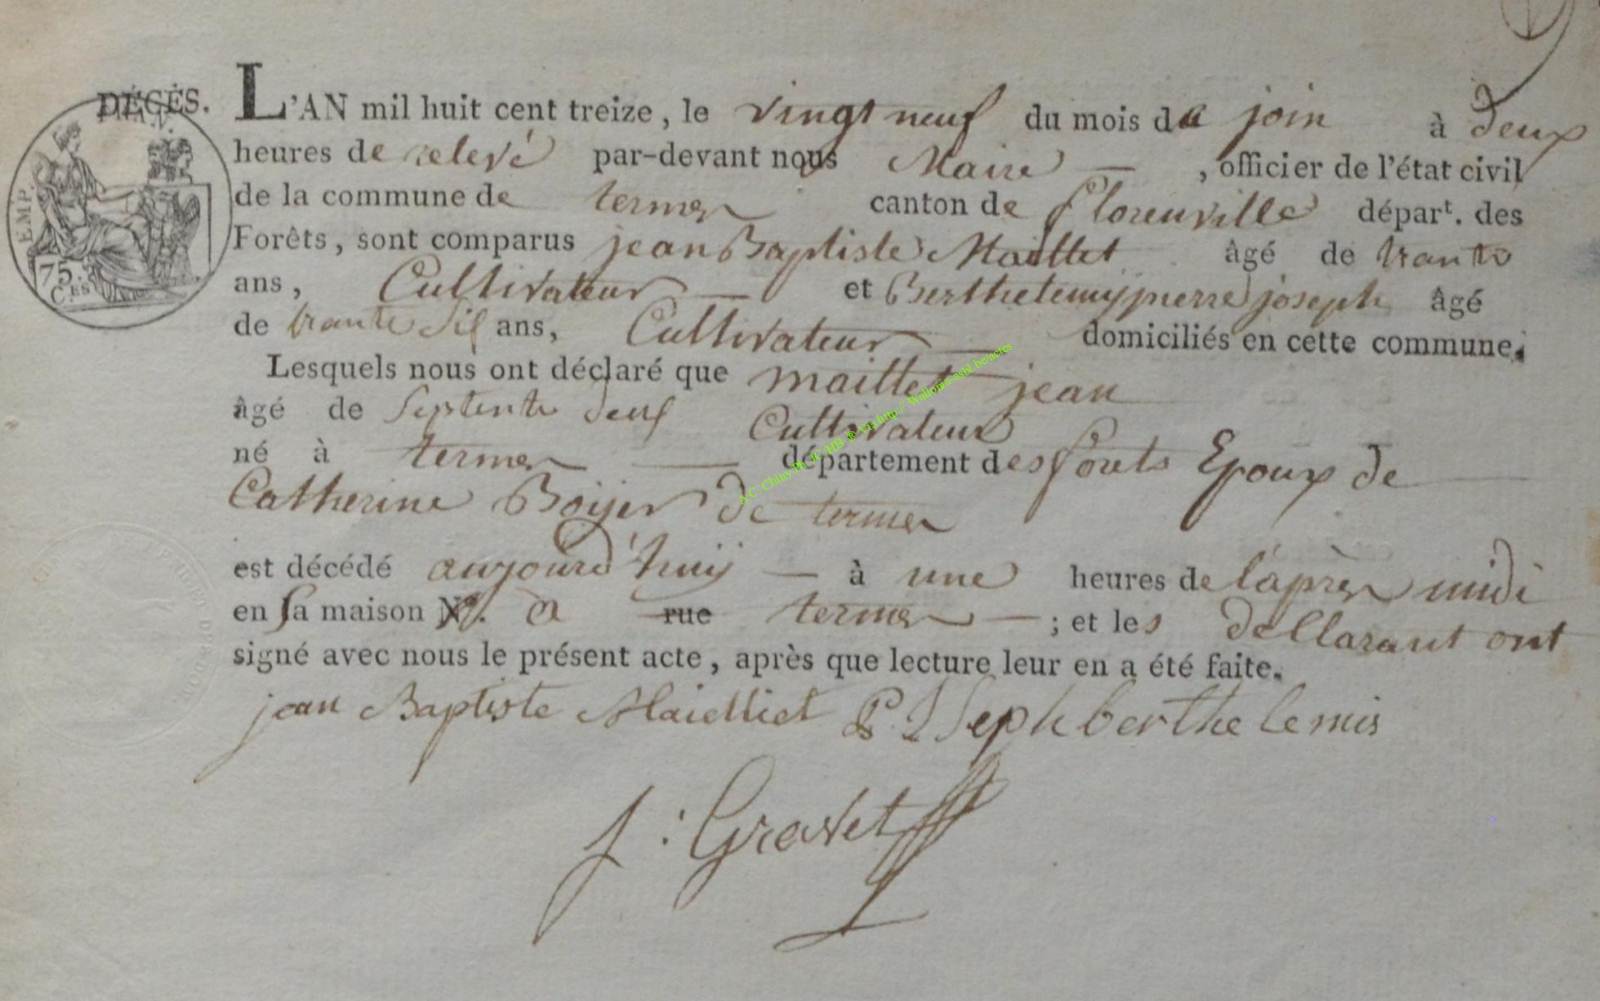 DÉCÈS.
L'AN mil huit cent treize, le vingt neuf du mois de join à deux
heures de relevé par-devant nous Maire, officier de l'état civil
de la commune de termes canton de florenville départ. des
Forêts, sont comparus jean Baptiste Maillet âgé de trante
ans, Cultivateur et Berthelemy pierre joseph âgé
de trante ans, Cultivateur domiciliés en cette commune.
Lesquels nous ont déclaré que maillet jean
âgé de septente deux Cultivateur
né à termes département des forêts Epoux de
Catherine Boijer de termes
est décédé aujourd'huij à une heures de l'après midi
en sa maison N°. à rue termes; et les dellarant ont
signé avec nous le présent acte, après que lecture leur en a été faite.
jean Baptiste Maielliet P. Jseph berthelemis
J: Gravet
EMP.
75.
C.ES